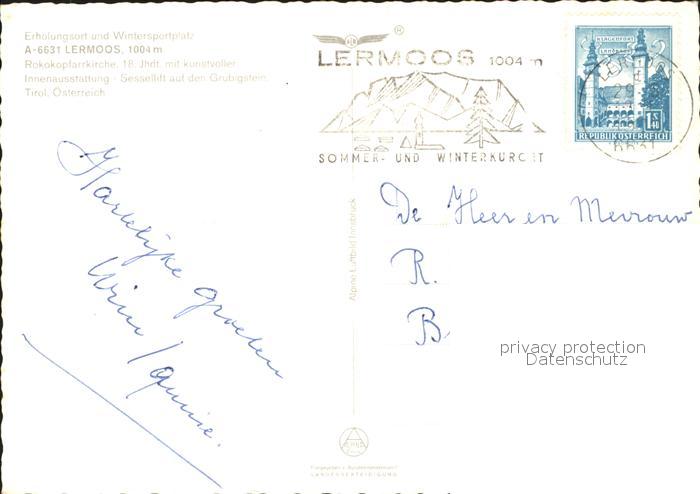 Erholungsort und Wintersportplatz
A-6631 LERMOOS, 1004 m
Rokokopfarrkirche, 18. Jhdt. mit kunstvoller
Innenausstattung - Sessellift auf den Grubigstein,
Tirol, Österreich
®
LERMOOS 1004 m
SOMMER- UND WINTERKURORT
KLAGENFURT
REPUBLIK ÖSTERREICH
6631
Hartelijke groeten
Wim
De Heer en Mevrouw
R.
B.
privacy protection
Datenschutz
Alpine Luftbild Innsbruck
LANDESVERTEIDIGUNG